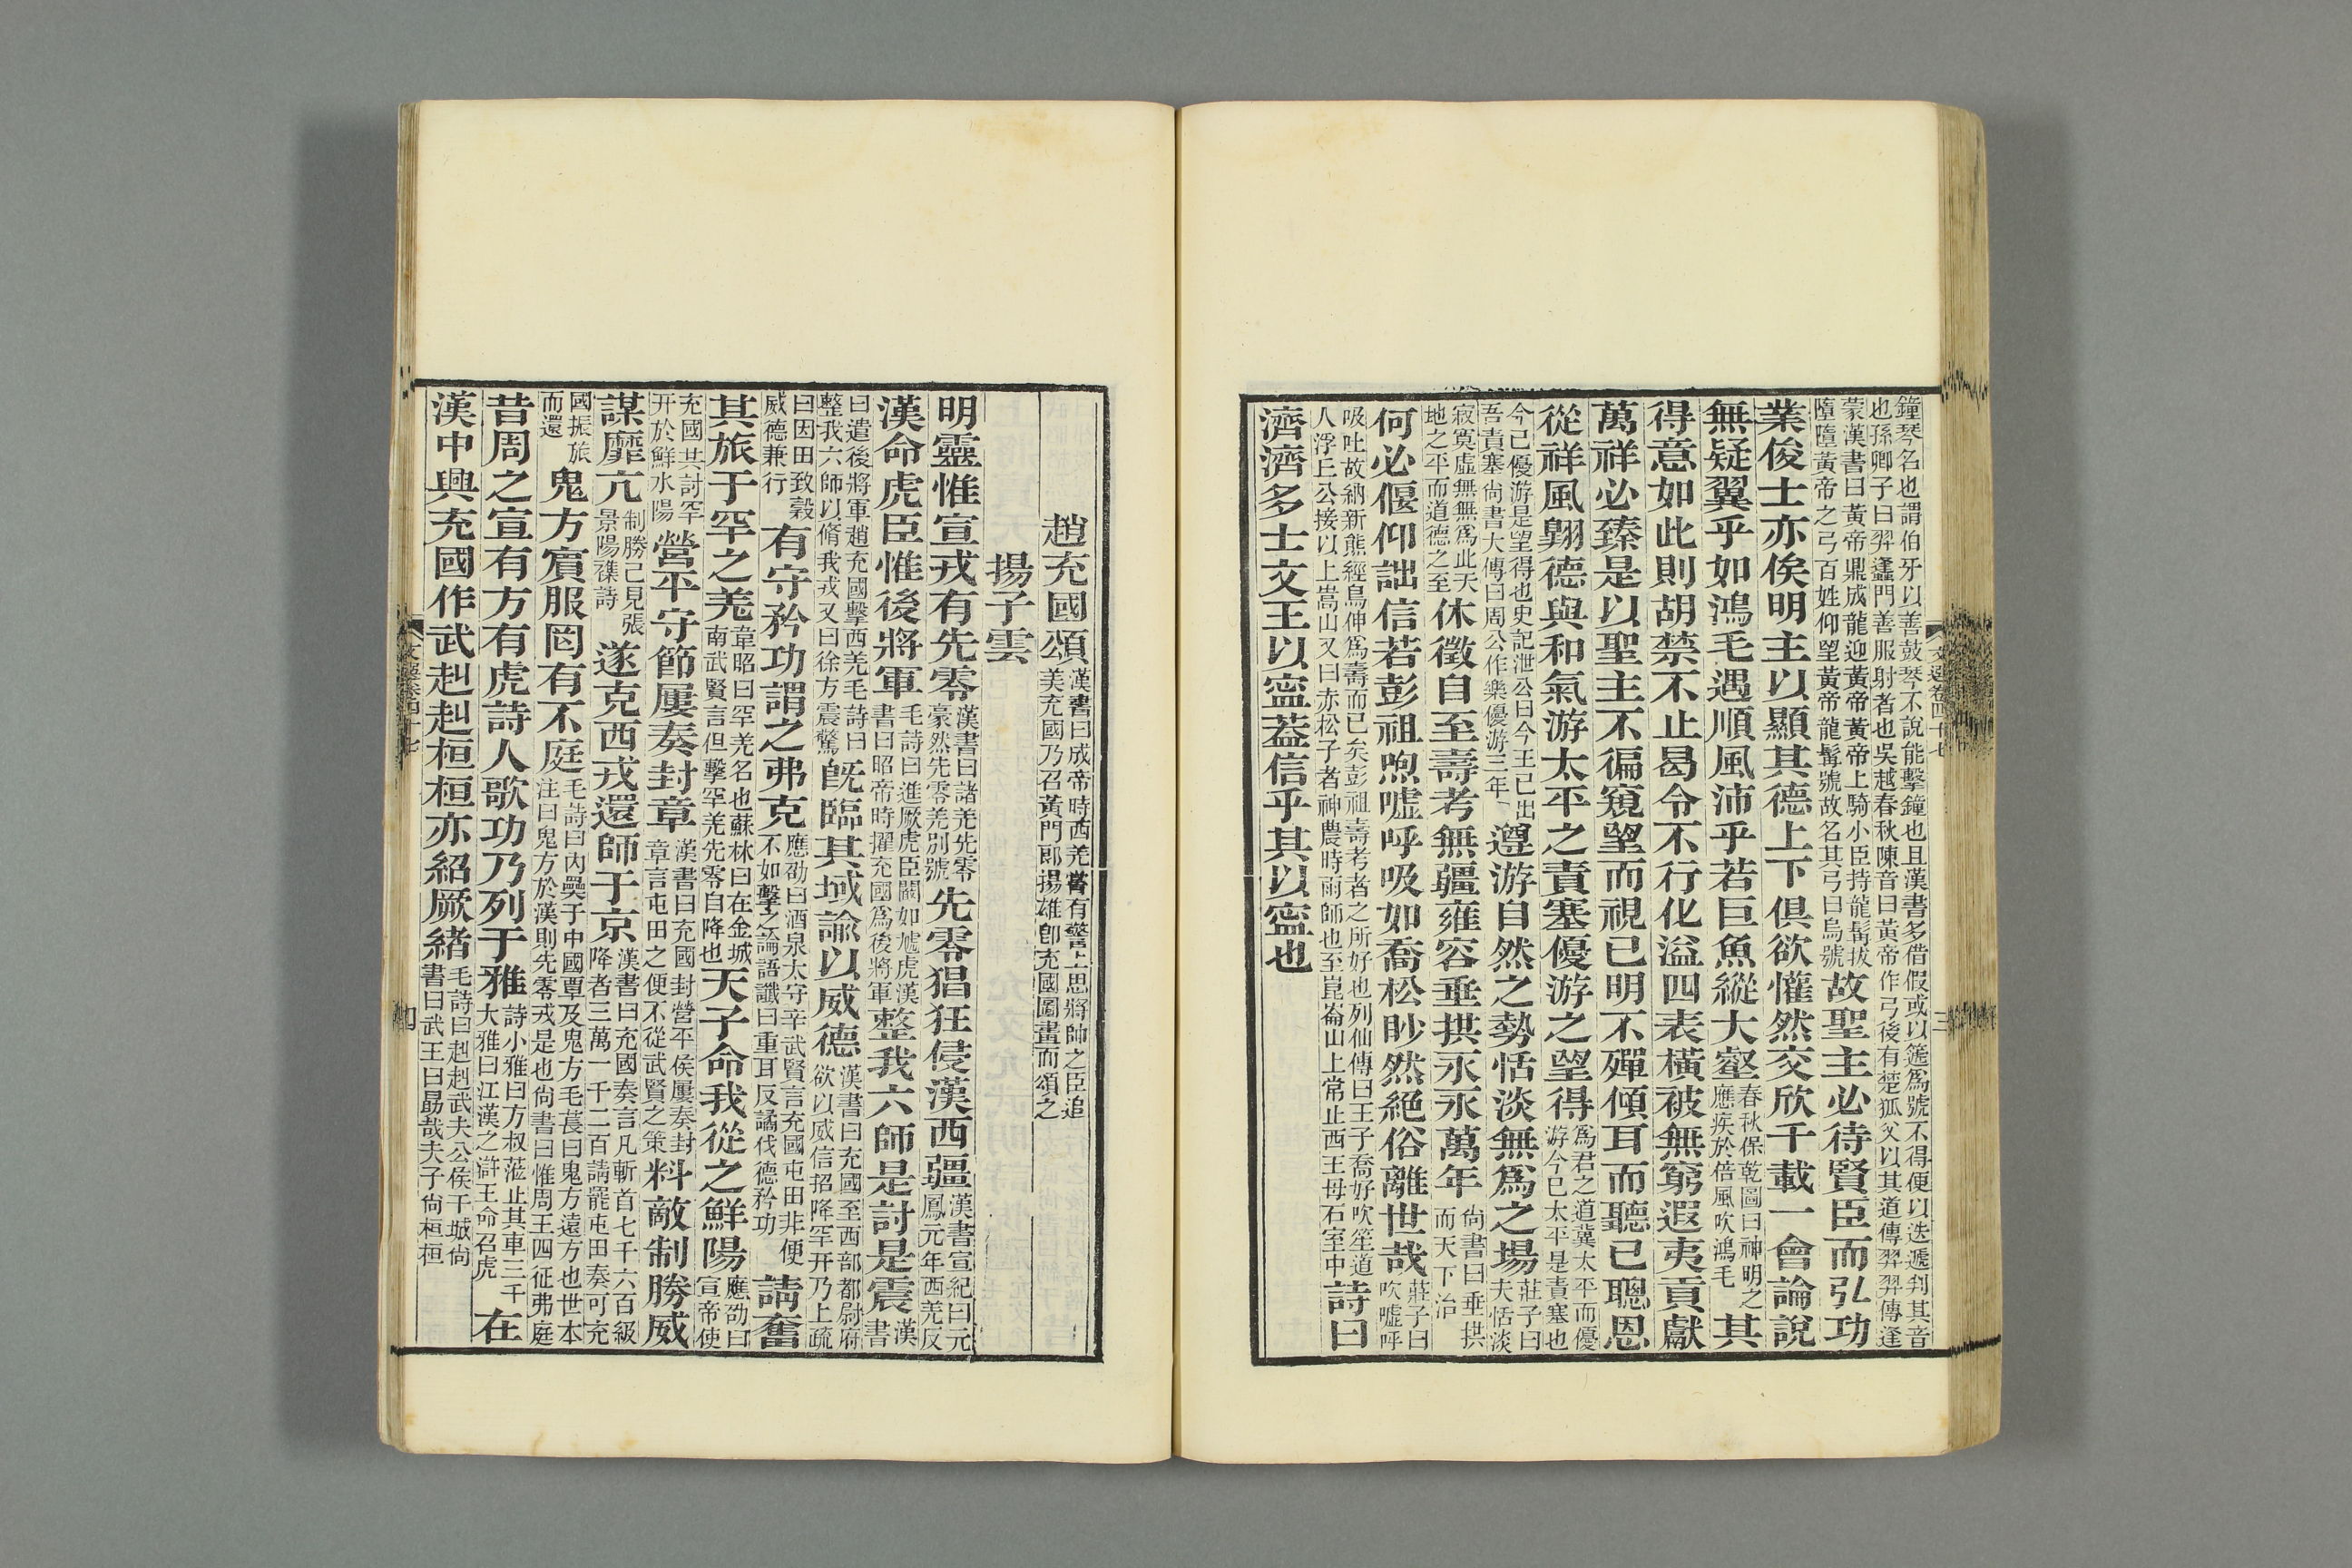 鐘琴名也謂伯牙以善鼓琴不說能擊鐘也且漢書多借假或以箎爲號不得便以迭遞判其音
也孫卿子曰羿蠭門善服射者也吳越春秋陳音曰黃帝作弓後有楚狐父以其道傳羿羿傳逢
蒙漢書曰黃帝鼎成龍迎黃帝黃帝上騎小臣持龍髯拔
墮墮黃帝之弓百姓仰望黃帝龍髯號故名其弓曰烏號
故聖主必待賢臣而弘功
業俊士亦俟明主以顯其德上下俱欲懽然交欣千載一會論說
無疑翼乎如鴻毛遇順風沛乎若巨魚縱大壑
春秋保乾圖曰神明之
應疾於倍風吹鴻毛
其
得意如此則胡禁不止曷令不行化溢四表橫被無窮遐夷貢獻
萬祥必臻是以聖主不徧窺望而視已明不殫傾耳而聽已聰恩
從祥風翺德與和氣游太平之責塞優游之望得
爲君之道冀太平而優
游今已太平是責塞也
今己優游是望得也史記泄公曰今王已出
吾責塞尙書大傳曰周公作樂優游三年
遵游自然之勢恬淡無爲之場
莊子曰
夫恬淡
寂寞虛無無爲此天
地之平而道德之至
休徵自至壽考無疆雍容垂拱永永萬年
尙書曰垂拱
而天下治
何必偃仰詘信若彭祖呴噓呼吸如喬松眇然絕俗離世哉
莊子曰
吹噓呼
吸吐故納新熊經鳥伸爲壽而已矣彭祖壽考者之所好也列仙傳曰王子喬好吹笙道
人浮丘公接以上嵩山又曰赤松子者神農時雨師也至崑崙山上常止西王母石室中
詩曰
濟濟多士文王以寍蓋信乎其以寍也
文選卷四十七
三
趙充國頌
漢書曰成帝時西羌嘗有警上思將帥之臣追
美充國乃召黃門郎揚雄卽充國圖畫而頌之
揚子雲
明靈惟宣戎有先零
漢書曰諸羌先零
豪然先零羌別號
先零猖狂侵漢西疆
漢書宣紀曰元
鳳元年西羌反
漢命虎臣惟後將軍
毛詩曰進厥虎臣闞如虓虎漢
書曰昭帝時擢充國爲後將軍
整我六師是討是震
漢
書
曰遣後將軍趙充國擊西羌毛詩曰
整我六師以脩我戎又曰徐方震驚
旣臨其域諭以威德
漢書曰充國至西部都尉府
欲以威信招降罕幵乃上疏
曰因田致穀
威德兼行
有守矜功謂之弗克
應劭曰酒泉太守辛武賢言充國屯田非便
不如擊之論語讖曰重耳反譎伐德矜功
請奮
其旅于罕之羌
韋昭曰罕羌名也蘇林曰在金城
南武賢言但擊罕羌先零自降也
天子命我從之鮮陽
應劭曰
宣帝使
充國共討罕
幵於鮮水陽
營平守節屢奏封章
漢書曰充國封營平侯屢奏封
章言屯田之便不從武賢之策
料敵制勝威
謀靡亢
制勝己見張
景陽襍詩
遂克西戎還師于京
漢書曰充國奏言凡斬首七千六百級
降者三萬一千二百請罷屯田奏可充
國振旅
而還
鬼方賓服罔有不庭
毛詩曰內奰于中國覃及鬼方毛萇曰鬼方遠方也世本
注曰鬼方於漢則先零戎是也尙書曰惟周王四征弗庭
昔周之宣有方有虎詩人歌功乃列于雅
詩小雅曰方叔涖止其車三千
大雅曰江漢之滸王命召虎
在
漢中興充國作武赳赳桓桓亦紹厥緒
毛詩曰赳赳武夫公侯干城尙
書曰武王曰勗哉夫子尙桓桓
文選卷四十七
四